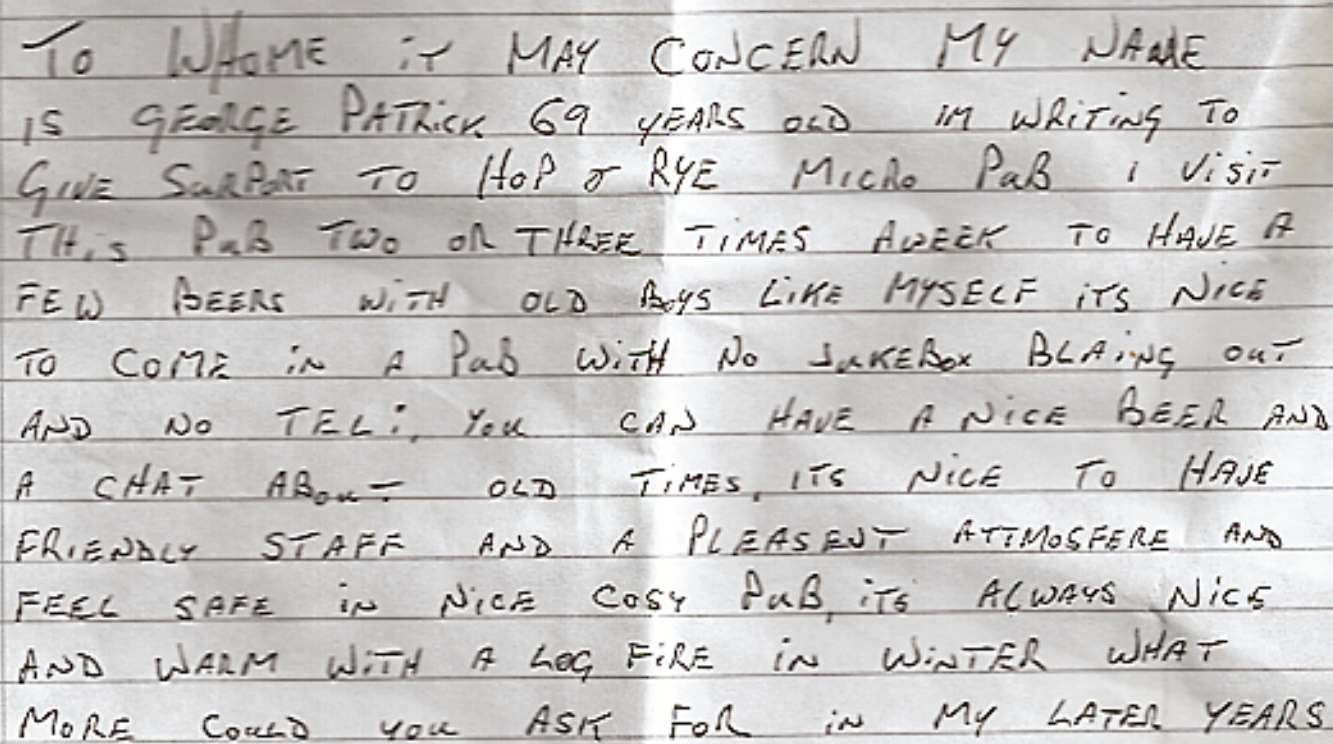 TO WHOME iT MAY CONCERN MY NAME
IS GEORGE PATRICK 69 YEARS OLD IM WRITING TO
GIVE SURPORT TO HOP & RYE MICRO PUB I VISIT
THIS PUB TWO OR THREE TIMES AWEEK TO HAVE A
FEW BEERS WITH OLD BOYS LIKE MYSELF ITS NICE
TO COME IN A PUB WITH NO JUKEBOX BLAING OUT
AND NO TELI, YOU CAN HAVE A NICE BEER AND
A CHAT ABOUT OLD TIMES, ITS NICE TO HAVE
FRIENDLY STAFF AND A PLEASENT ATTMOSFERE AND
FEEL SAFE IN NICE COSY PUB, ITS ALWAYS NICE
AND WARM WITH A LOG FIRE IN WINTER WHAT
MORE COULD YOU ASK FOR IN MY LATER YEARS